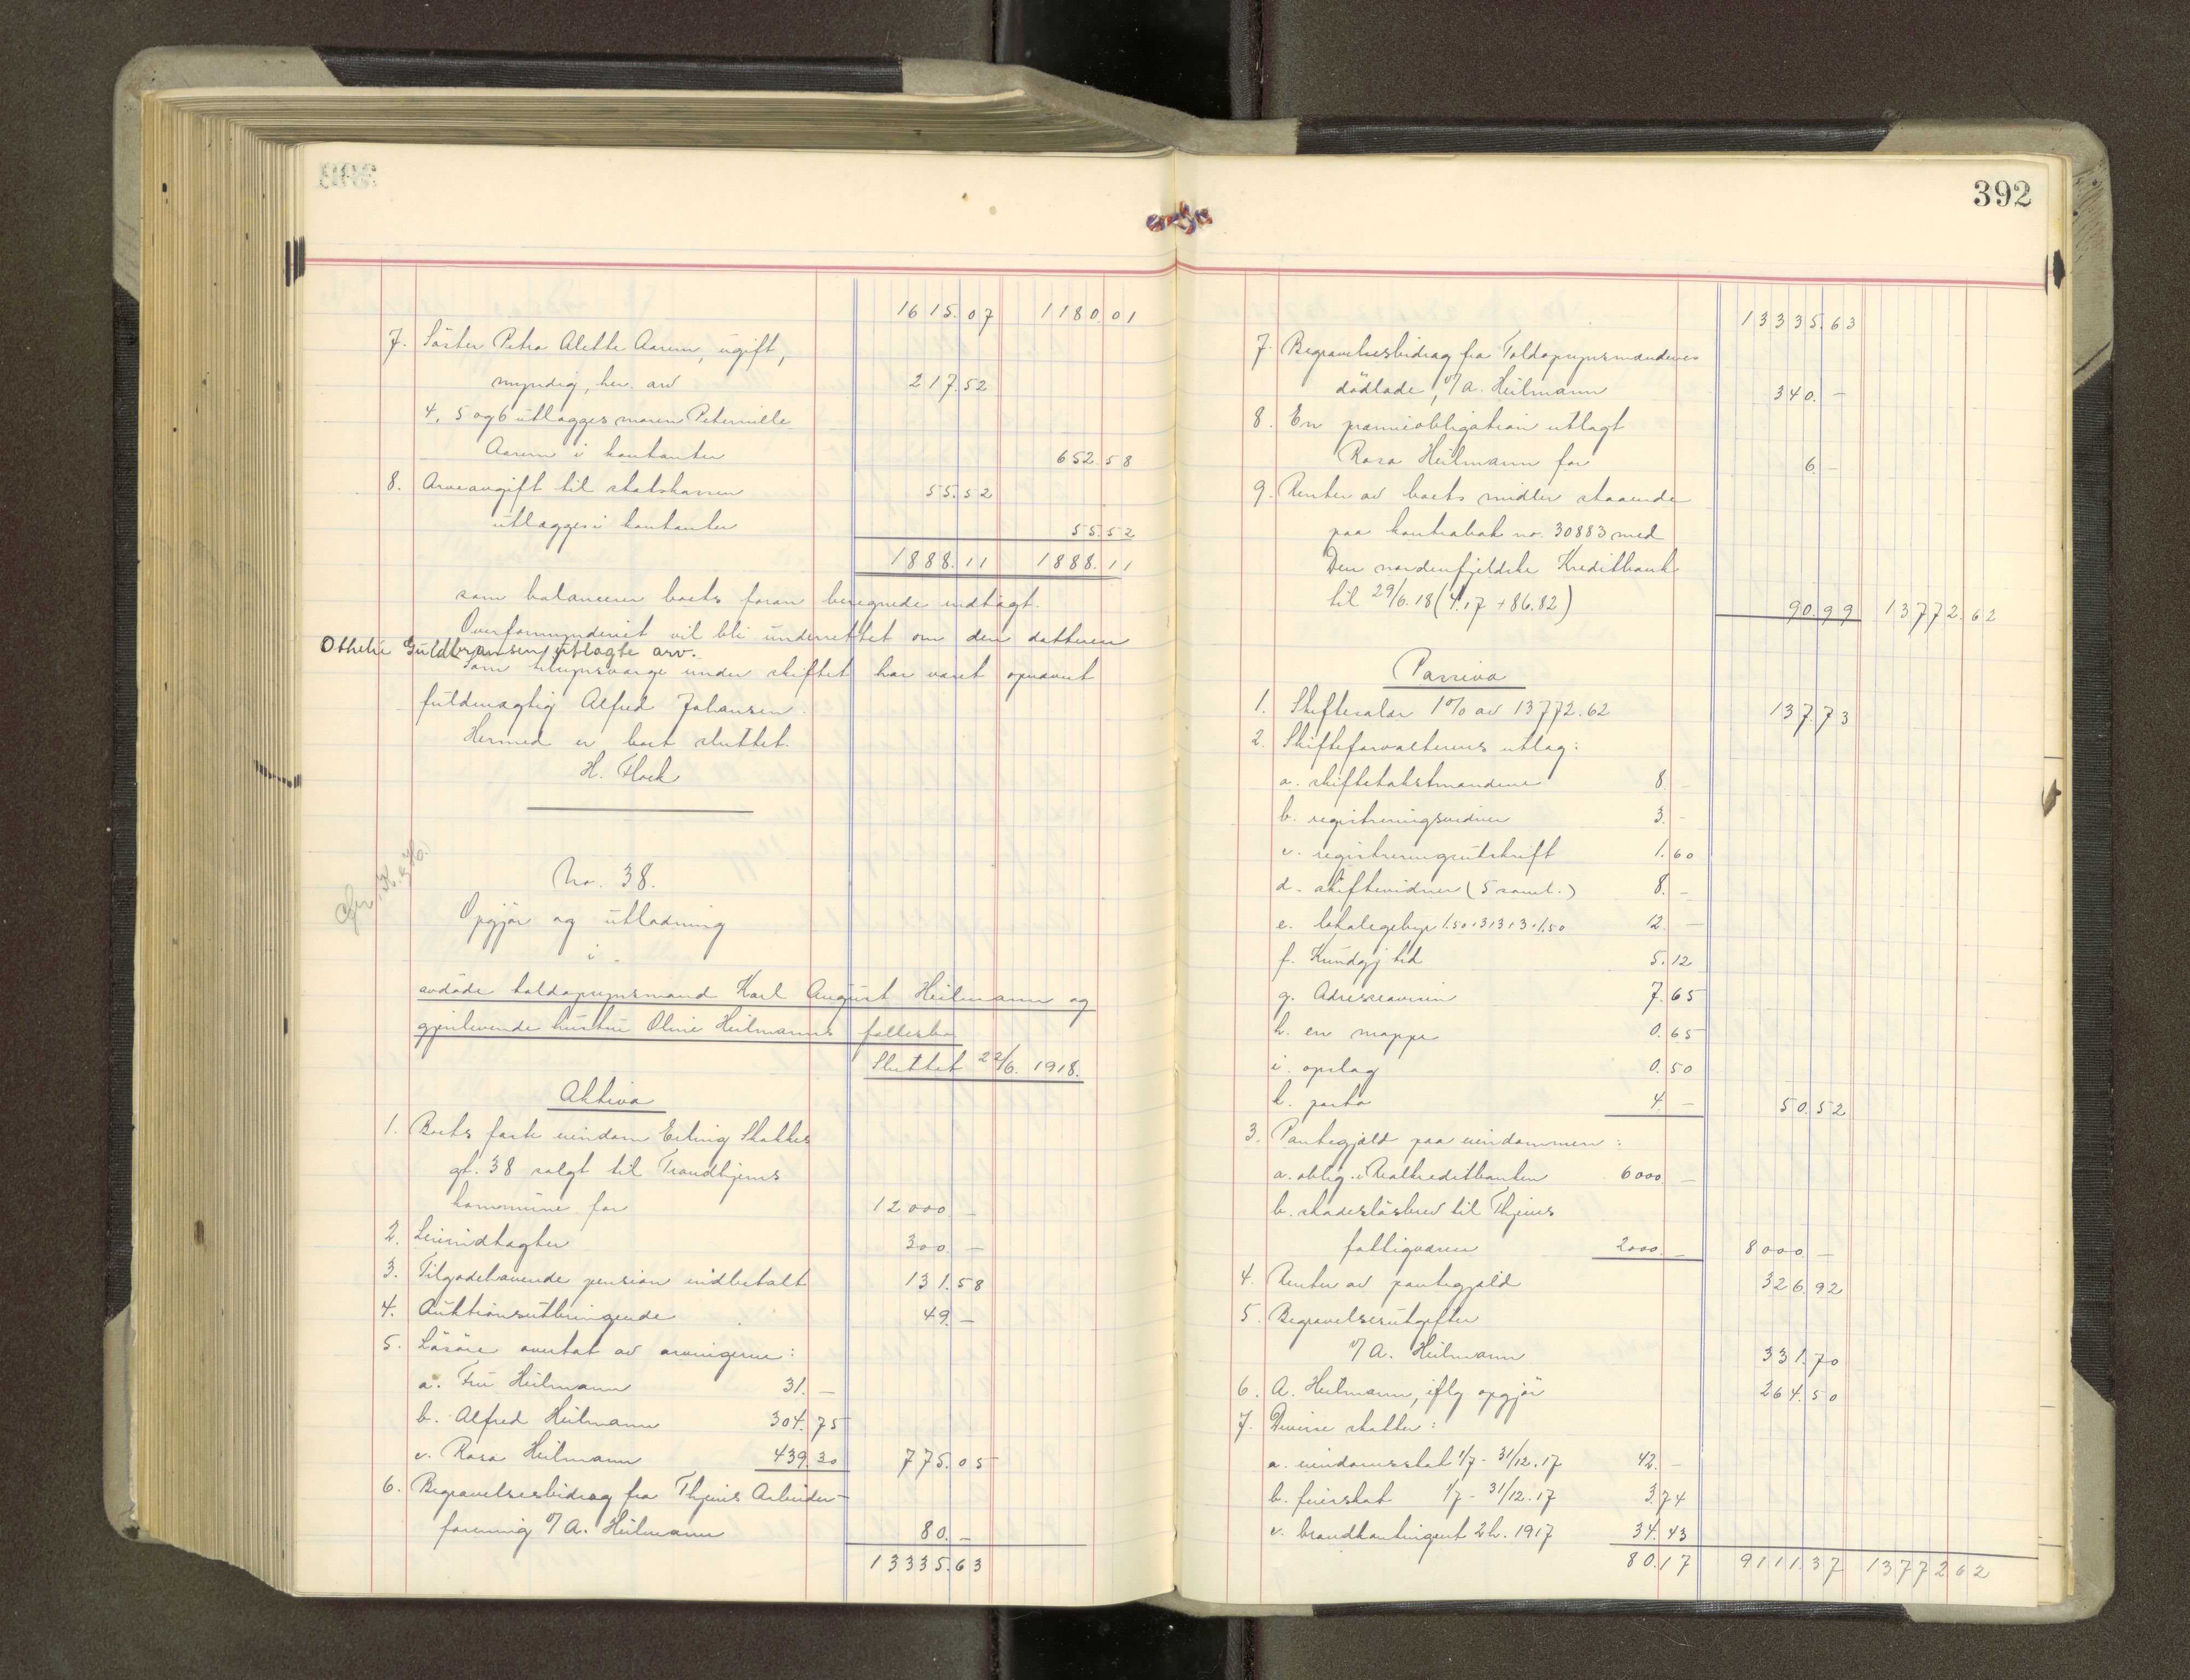 392
1615.07 1180.01
7. Söster Petra Alette Aarem, ugift,
myndig, her. arv 217.52
4, 5 og 6 utlægges moren Peternille
Aarem i kontanter 652.58
8. Arveavgift til statskassen 55.52
utlægges i kontanter 55.52
1888.11 1888.11
som balancerer boets foran beregnede indtægt.
Overformynderiet vil bli underrettet om den datteren
Othelie Guldbransen utlagte arv.
Som tilsynsværge under skiftet har været opnævnt
fuldmægtig Alfred Johansen.
Hermed er boet sluttet.
H. Flock
No. 38.
Opgjör og utlodning
i
avdöde toldopsynsmand Karl August Heilmann og
gjenlevende hustru Oline Heilmanns fællesbo
Sluttet 22/6. 1918.
Aktiva
1. Boets faste eiendom Erling Skakkes
gt. 38 solgt til Trondhjems
kommune for 12000.-
2. Leieindtægter 300.-
3. Tilgodehavende pension indbetalt 131.58
4. Auktionsutbringende 49.-
5. Lösöre overtat av arvingerne:
a. Fru Heilmann 31.-
b. Alfred Heilmann 304.75
c. Rosa Heilmann 439.30 775.05
6. Begravelsesbidrag fra Thjems Arbeider-
forening v/ A. Heilmann 80.-
13335.63
13335.63
7. Begravelsesbidrag fra Toldopsynsmændenes
dödlade, v/ A. Heilmann 340.-
8. En præmieobligation utlagt
Rosa Heilmann for 6.-
9. Renter av boets midler staaende
paa kontrabok no. 30883 med
Den nordenfjeldske Kreditbank
til 29/6.18 (4.17 + 86.82) 90.99 13772.62
Passiva
1. Skiftesalær 1% av 13772.62 137.73
2. Skifteforvalterens utlæg:
a. skiftetakstmændene 8.-
b. registreringsvidner 3.-
c. registreringsutskrift 1.60
d. skiftevidner (5 saml.) 8.-
e. lokalegebyr 1.50+3+3+3+1.50 12.-
f. Kundgj tid 5.12
g. Adresseavisen 7.65
h. en mappe 0.65
i. opslag 0.50
k. porto 4.- 50.52
3. Pantegjæld paa eiendommen:
a. oblig. i Realkreditbanken 6000.-
b. skadeslösbrev til Thjems
fattigvæsen 2000.- 8000.-
4. Renter av pantegjæld 326.92
5. Begravelsesutgifter
v/ A. Heilmann 331.70
6. A. Heilmann, iflg opgjör 264.50
7. Diverse skatter:
a. eiendomsskat 1/7 - 31/12.17 42.-
b. feierskat 1/7 - 31/12.17 3.74
c. brandkontingent 2h. 1917 34.43
80.17 9111.37 13772.62